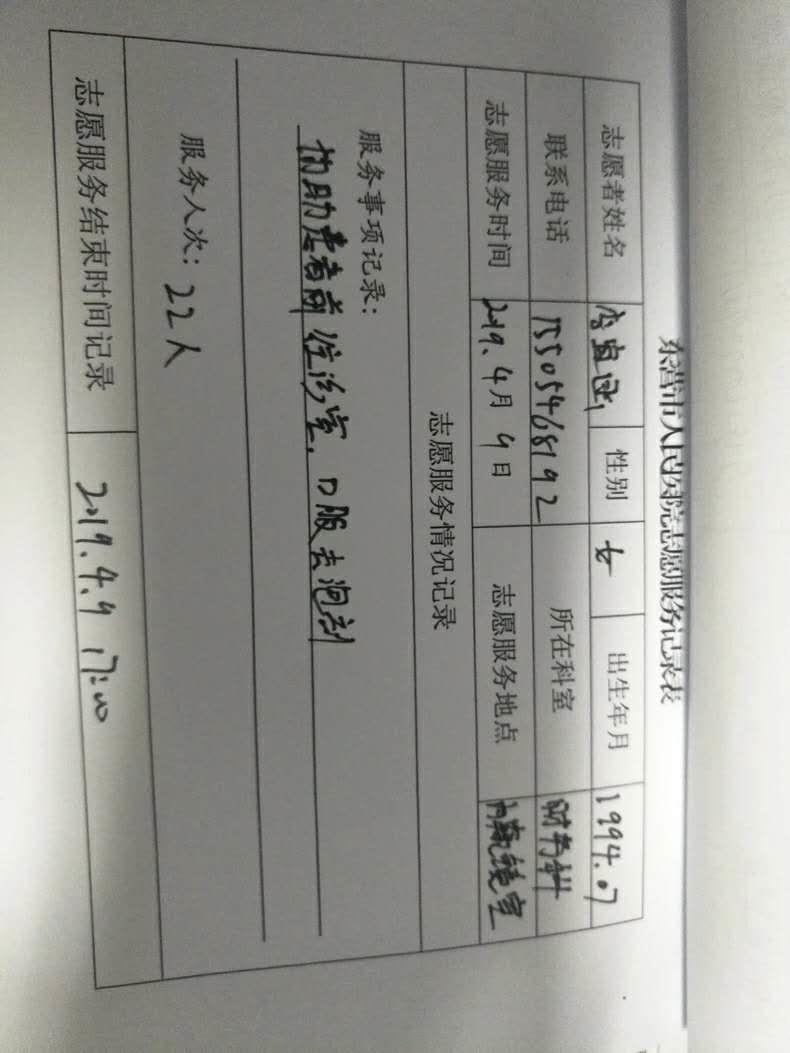 东营市人民医院志愿服务记录表
志愿者姓名 性别 女 出生年月 1994.07
联系电话 15505468192 所在科室 财务科
志愿服务时间 2019.4月9日 志愿服务地点 内窥镜室
志愿服务情况记录
服务事项记录：
协助患者前往诊室，口服去泡剂
服务人次：22人
志愿服务结束时间记录 2019.4.9 17:00